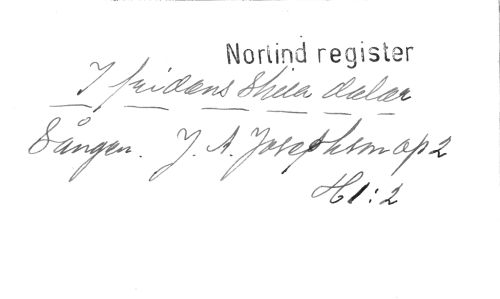 Norlind register
I fridens stilla dalar
Sången. J. A. Josephson op 2
H 1:2